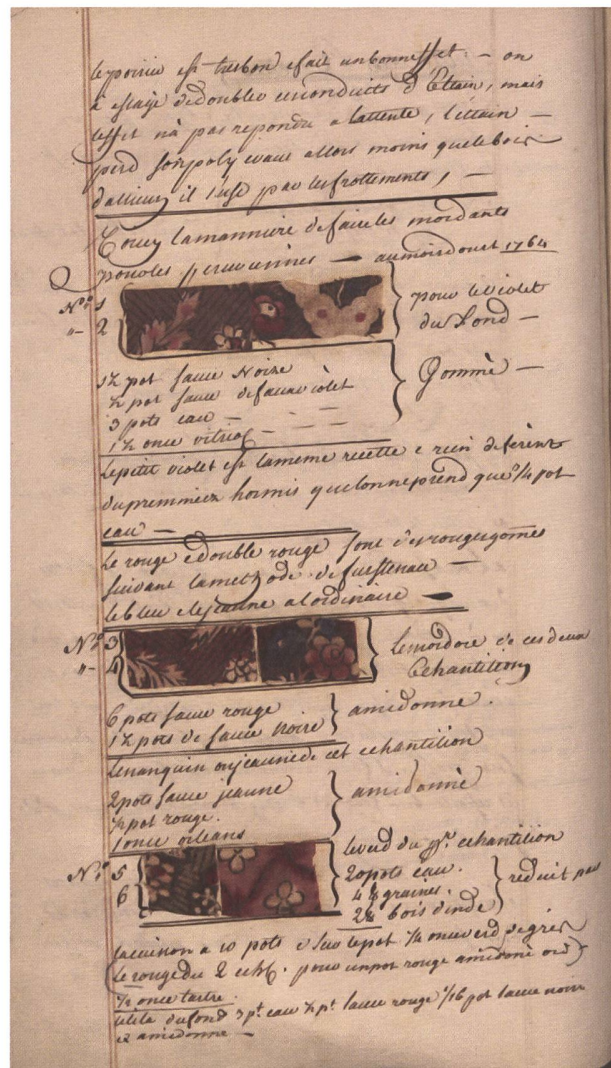 le poirié est tres bon e fait un bon effet. — on
a essaÿé de doubler ces conduits d'Etain, mais
l'effet n'à pas repondu a l'attente, l'étain —
perd son poly e vaut allors moins que le bois
d'allieurs il s'use par les frottements, —
Voicy la manniere de faire les mordants
pour les peruviennes — au mois d'out 1764
Nº 1
"— 2
pour le violet
du Fond —
1½ pot sauce Noire
½ pot sauce de faux violet
3 pots eau —
1½ once vitriol —
Gommé —
Le petit violet est la meme recette e rien deferent
du premmier hormis que lon ne prend que ¾ pot
eau —
Le rouge e double rouge sont des rouges gomés
suivant la methode de furstenau —
le bleu e le jaune a lordinaire —
Nº 3
"— 4
le mordoré de ces deux
Echantilions
6 pots sauce rouge
1½ pots de sauce Noire
amidonné.
Le nanquin ou jaune de cet echantilion
2 pots sauce jeaune
½ pot rouge.
1 once orleans
amidonné
Nº 5
6
le verd du pr. echantilion
20 pots eau.
graines.
bois d'inde
reduit par
la cuison a 10 pots e sur le pot ¼ once verd de gris
(le rouge du 2 ech. pour un pot rouge amidoné ord)
½ once tartre.
du fond 3 pt. eau ½ pt. sauce rouge 1/16 pot sauce noire
amidonné —